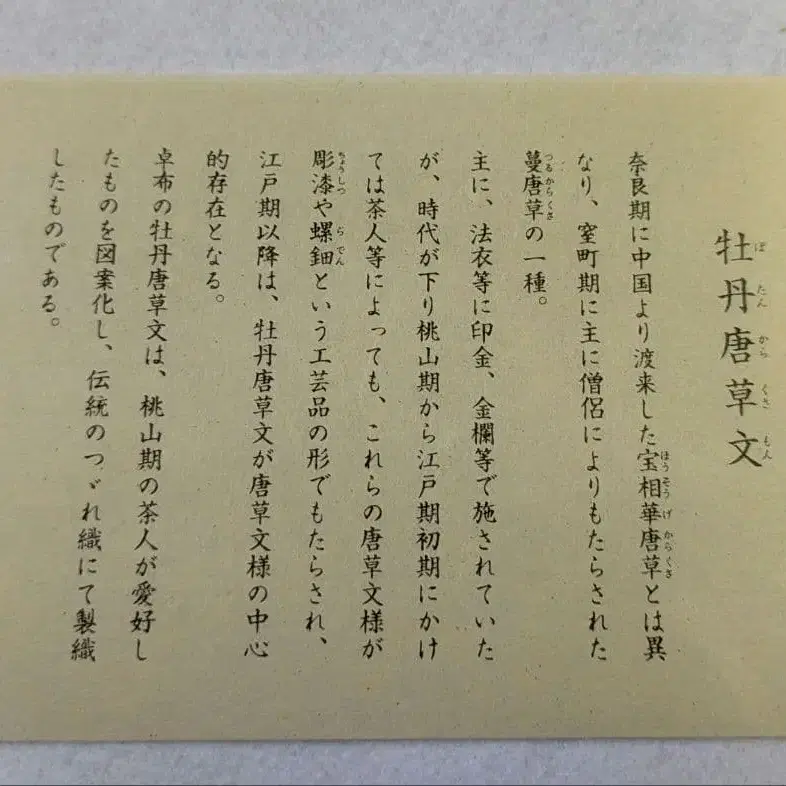 牡丹唐草文
奈良期に中国より渡来した宝相華唐草とは異
なり、室町期に主に僧侶によりもたらされた
蔓唐草の一種。
主に、法衣等に印金、金襴等で施されていた
が、時代が下り桃山期から江戸期初期にかけ
ては茶人等によっても、これらの唐草文様が
彫漆や螺鈿という工芸品の形でもたらされ、
江戸期以降は、牡丹唐草文が唐草文様の中心
的存在となる。
卓布の牡丹唐草文は、桃山期の茶人が愛好し
たものを図案化し、伝統のつゞれ織にて製織
したものである。